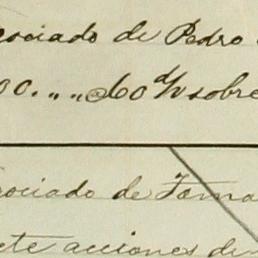 sociado de Pedro
00. „ „ @ 60 d/v sobre
sociado de Toma
ete acciones de